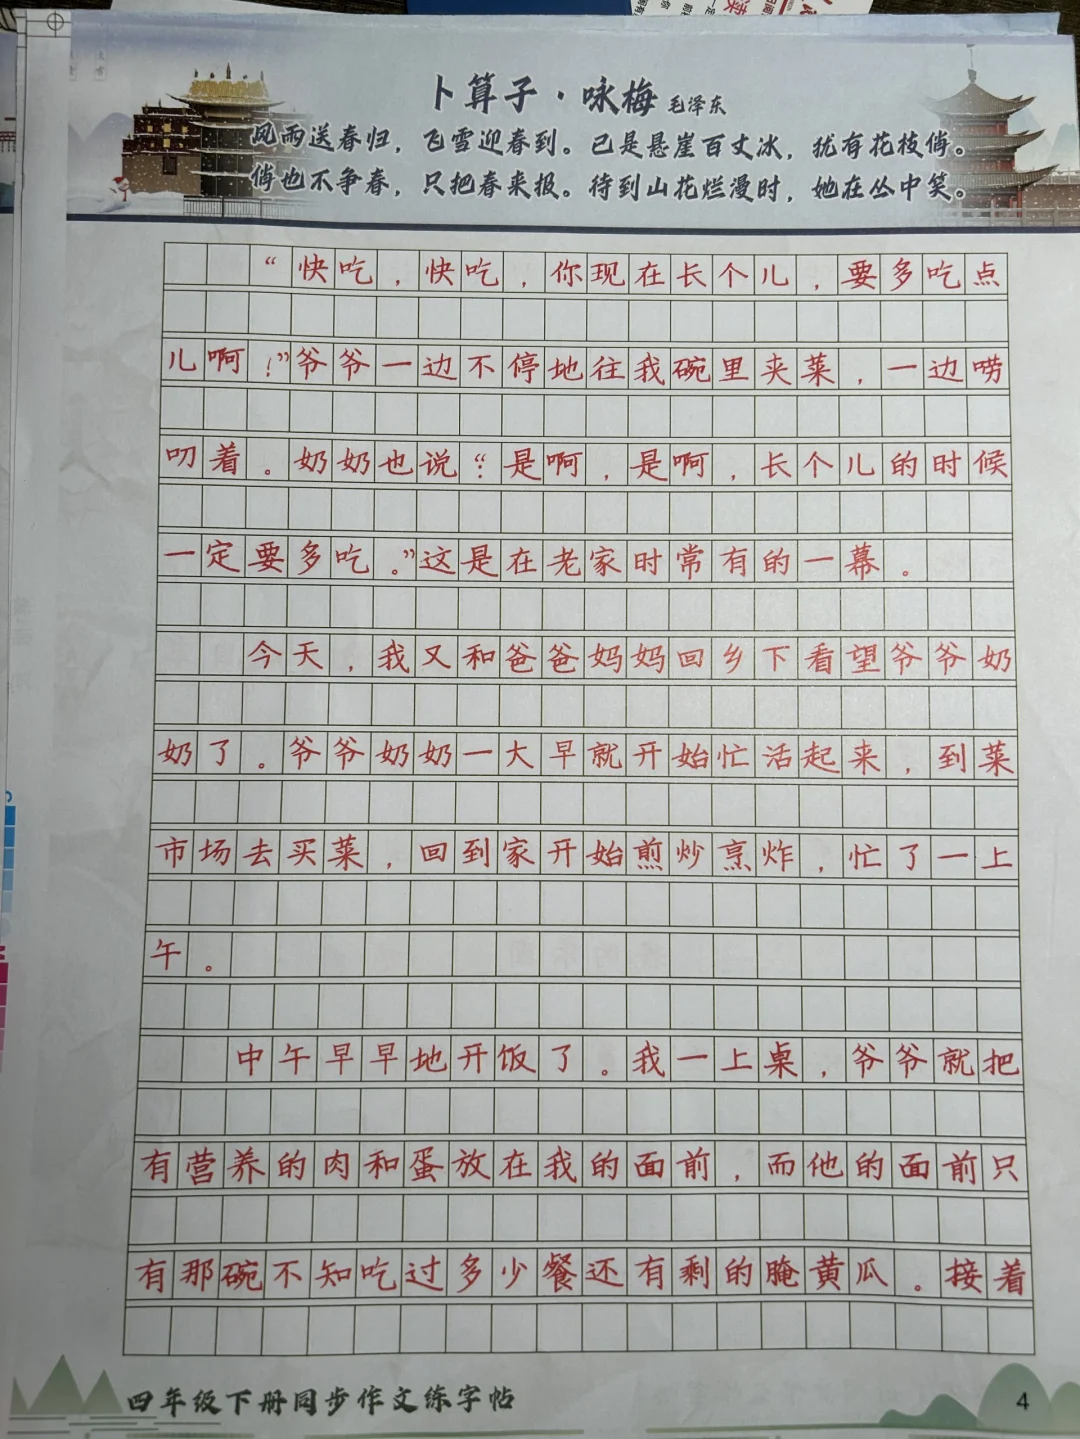 卜算子·咏梅 毛泽东
风雨送春归，飞雪迎春到。已是悬崖百丈冰，犹有花枝俏。
俏也不争春，只把春来报。待到山花烂漫时，她在丛中笑。
“快吃，快吃，你现在长个儿，要多吃点
儿啊！”爷爷一边不停地往我碗里夹菜，一边唠
叨着。奶奶也说：“是啊，是啊，长个儿的时候
一定要多吃。”这是在老家时常有的一幕。
今天，我又和爸爸妈妈回乡下看望爷爷奶
奶了。爷爷奶奶一大早就开始忙活起来，到菜
市场去买菜，回到家开始煎炒烹炸，忙了一上
午。
中午早早地开饭了。我一上桌，爷爷就把
有营养的肉和蛋放在我的面前，而他的面前只
有那碗不知吃过多少餐还有剩的腌黄瓜。接着
四年级下册同步作文练字帖
4